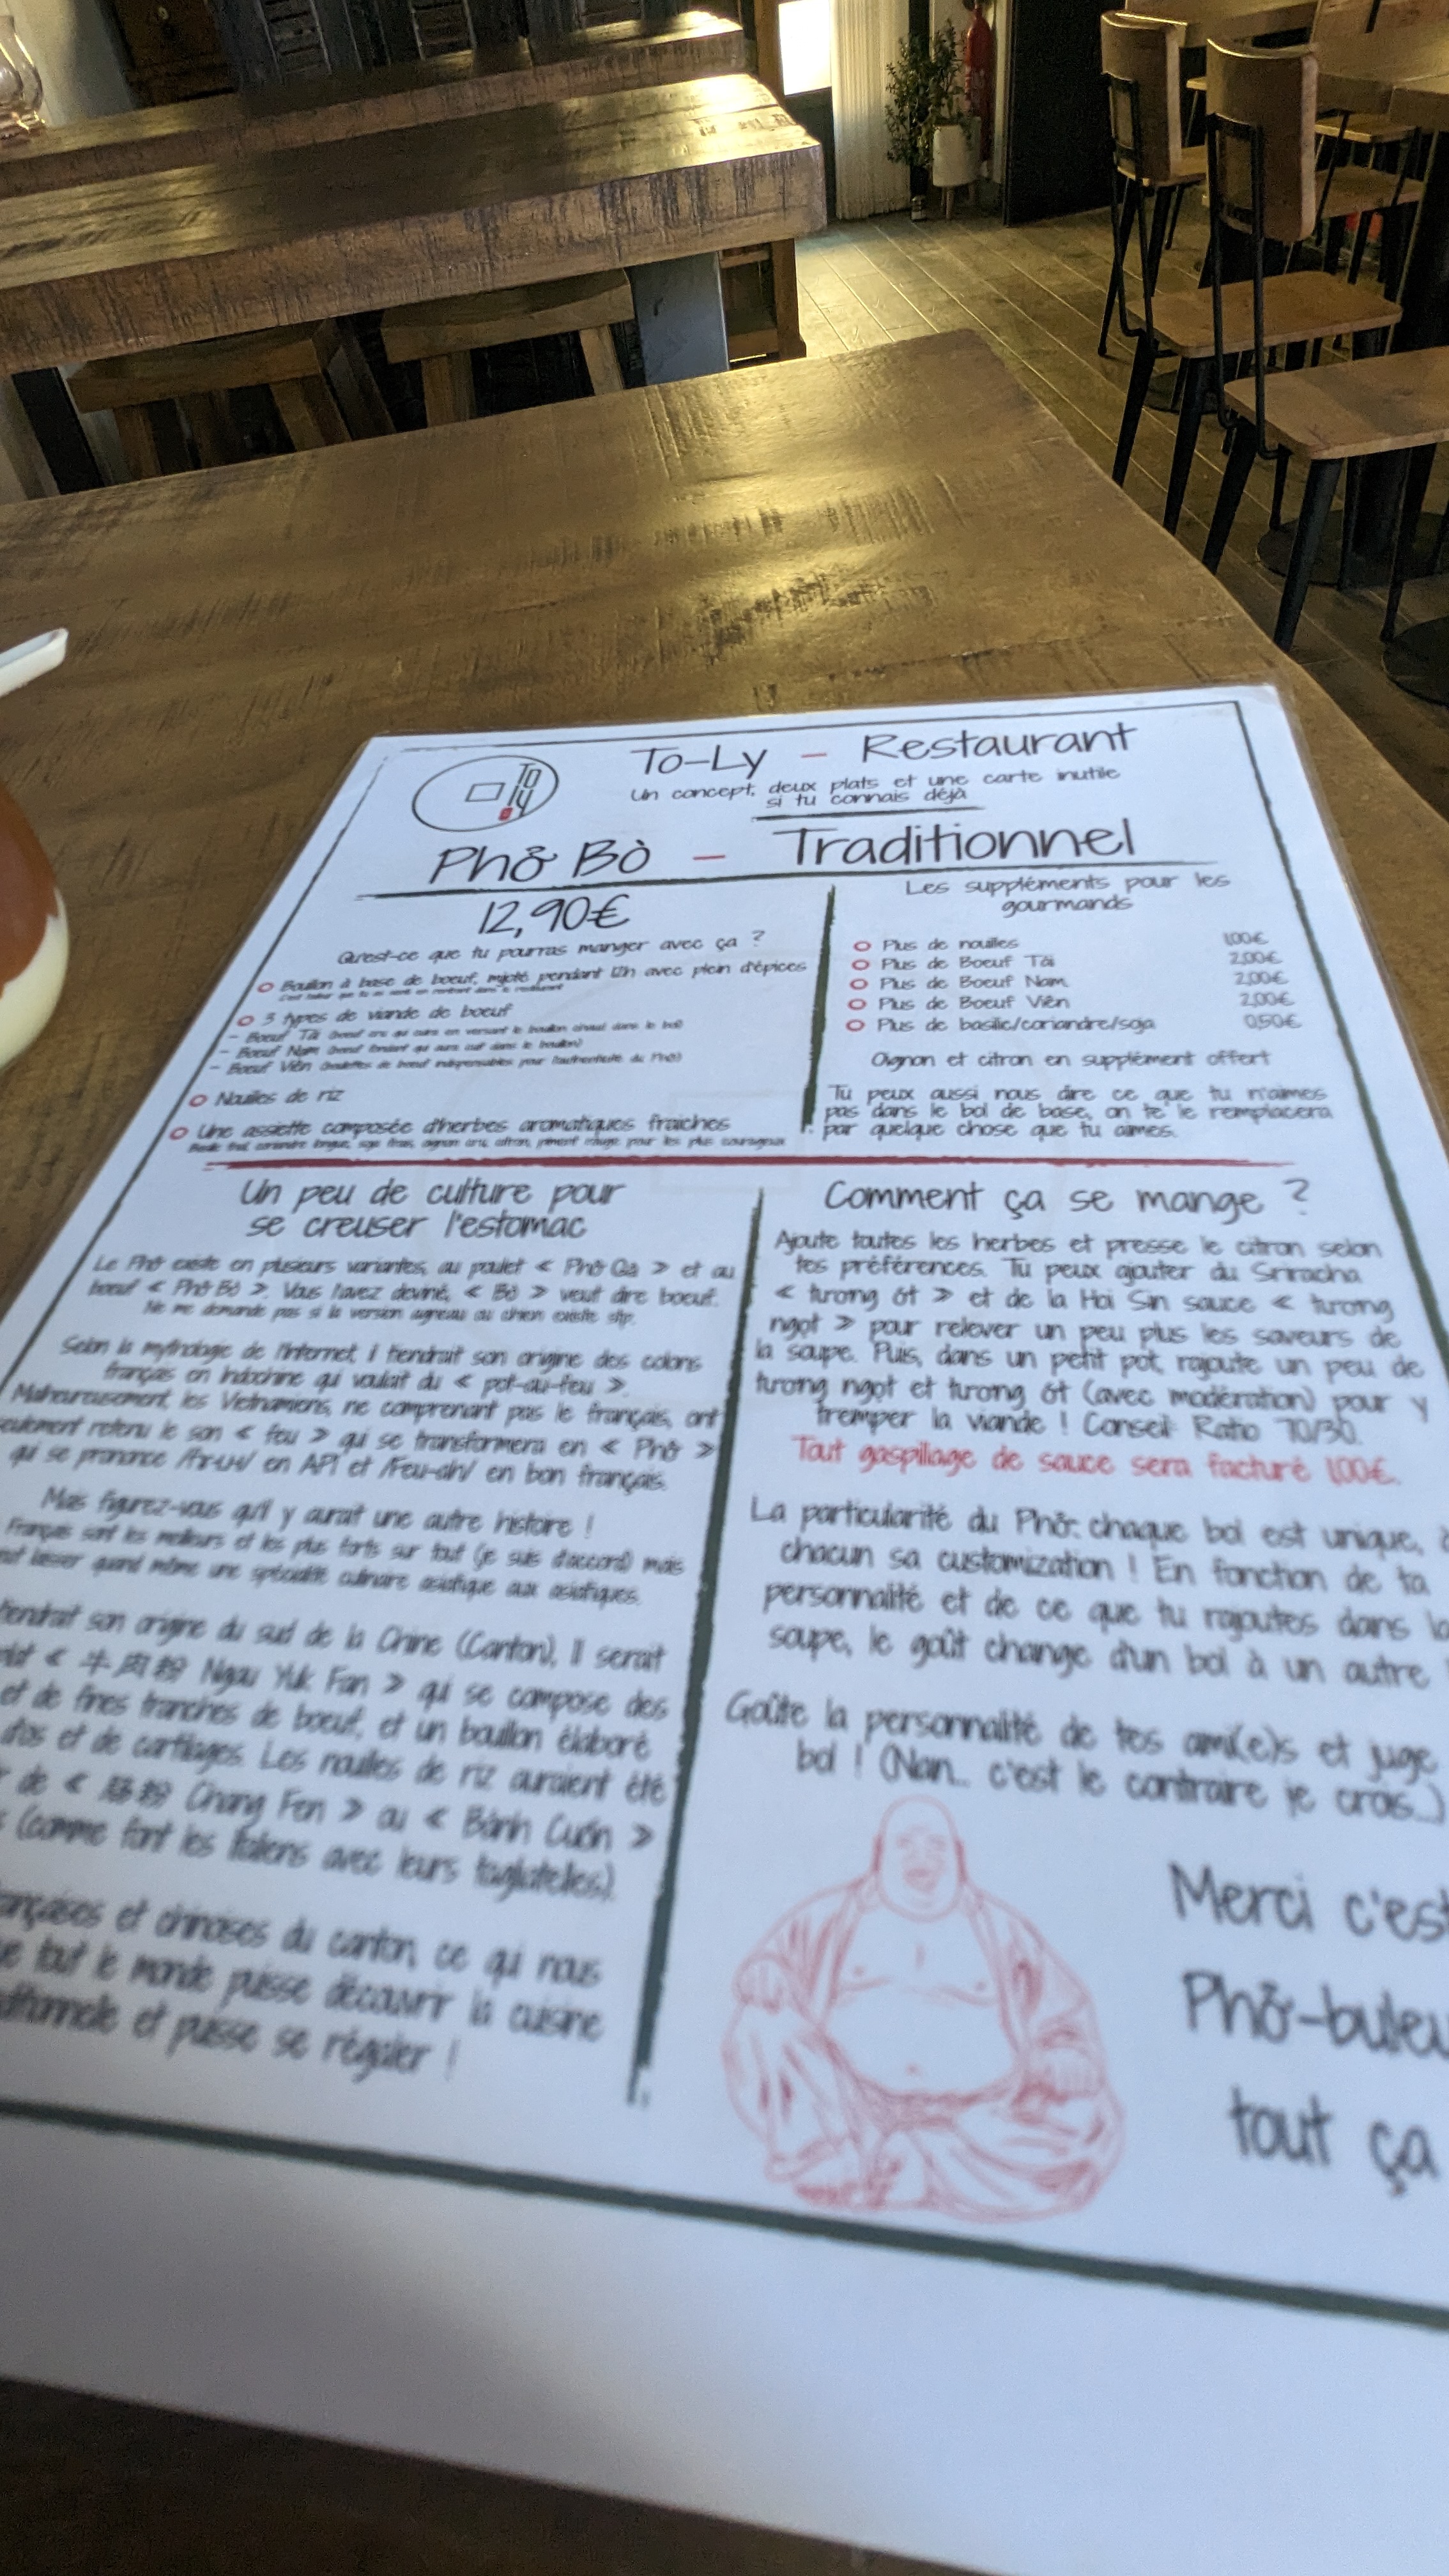 To Ly
To-Ly – Restaurant
Un concept, deux plats et une carte inutile
si tu connais déjà
Phở Bò – Traditionnel
12,90€
Qu'est-ce que tu pourras manger avec ça ?
Bouillon à base de boeuf, mijoté pendant 12h avec plein d'épices
3 types de viande de boeuf
- Boeuf Tái (boeuf cru qui cuira en versant le bouillon chaud dans le bol)
- Boeuf Nam (boeuf fondant qui aura cuit dans le bouillon)
- Boeuf Viên (boulettes de boeuf indispensables pour l'authenticité du Phở)
Nouilles de riz
Une assiette composée d'herbes aromatiques fraiches
Les suppléments pour les
gourmands
Plus de nouilles 1,00€
Plus de Boeuf Tái 2,00€
Plus de Boeuf Nam 2,00€
Plus de Boeuf Viên 2,00€
Plus de basilic/coriandre/soja 0,50€
Oignon et citron en supplément offert
Tu peux aussi nous dire ce que tu n'aimes
pas dans le bol de base, on te le remplacera
par quelque chose que tu aimes.
Un peu de culture pour
se creuser l'estomac
Le Phở existe en plusieurs variantes, au poulet « Phở Ga » et au
boeuf « Phở Bò ». Vous l'avez deviné, « Bò » veut dire boeuf.
Ne me demande pas si la version agneau ou chien existe stp.
Selon la mythologie de l'internet, il tiendrait son origine des colons
français en Indochine qui voulait du « pot-au-feu ».
Malheureusement, les Vietnamiens, ne comprenant pas le français, ont
seulement retenu le son « feu » qui se transformera en « Phở »
qui se prononce en API et /Feu-ah/ en bon français.
Mais figurez-vous qu'il y aurait une autre histoire !
Français sont les meilleurs et les plus forts sur tout (je suis d'accord) mais
laisser quand même une spécialité culinaire asiatique aux asiatiques.
tiendrait son origine du sud de la Chine (Canton). Il serait
« 牛肉粉 Ngau Yuk Fan » qui se compose des
et de fines tranches de boeuf, et un bouillon élaboré
d'os et de cartilages. Les nouilles de riz auraient été
de « 肠粉 Chang Fen » ou « Bánh Cuốn »
(comme font les Italiens avec leurs tagliatelles).
françaises et chinoises du canton, ce qui nous
tout le monde puisse découvrir la cuisine
et puisse se régaler !
Comment ça se mange ?
Ajoute toutes les herbes et presse le citron selon
tes préférences. Tu peux ajouter du Sriracha
« tương ớt » et de la Hoi Sin sauce « tương
ngọt » pour relever un peu plus les saveurs de
la soupe. Puis, dans un petit pot, rajoute un peu de
tương ngọt et tương ớt (avec modération) pour y
tremper la viande ! Conseil: Ratio 70/30.
Tout gaspillage de sauce sera facturé 1,00€.
La particularité du Phở: chaque bol est unique, à
chacun sa customization ! En fonction de ta
personnalité et de ce que tu rajoutes dans la
soupe, le goût change d'un bol à un autre
Goûte la personnalité de tes ami(e)s et juge
bol ! (Nan... c'est le contraire je crois...)
Merci c'est
Phở-buleu
tout ça